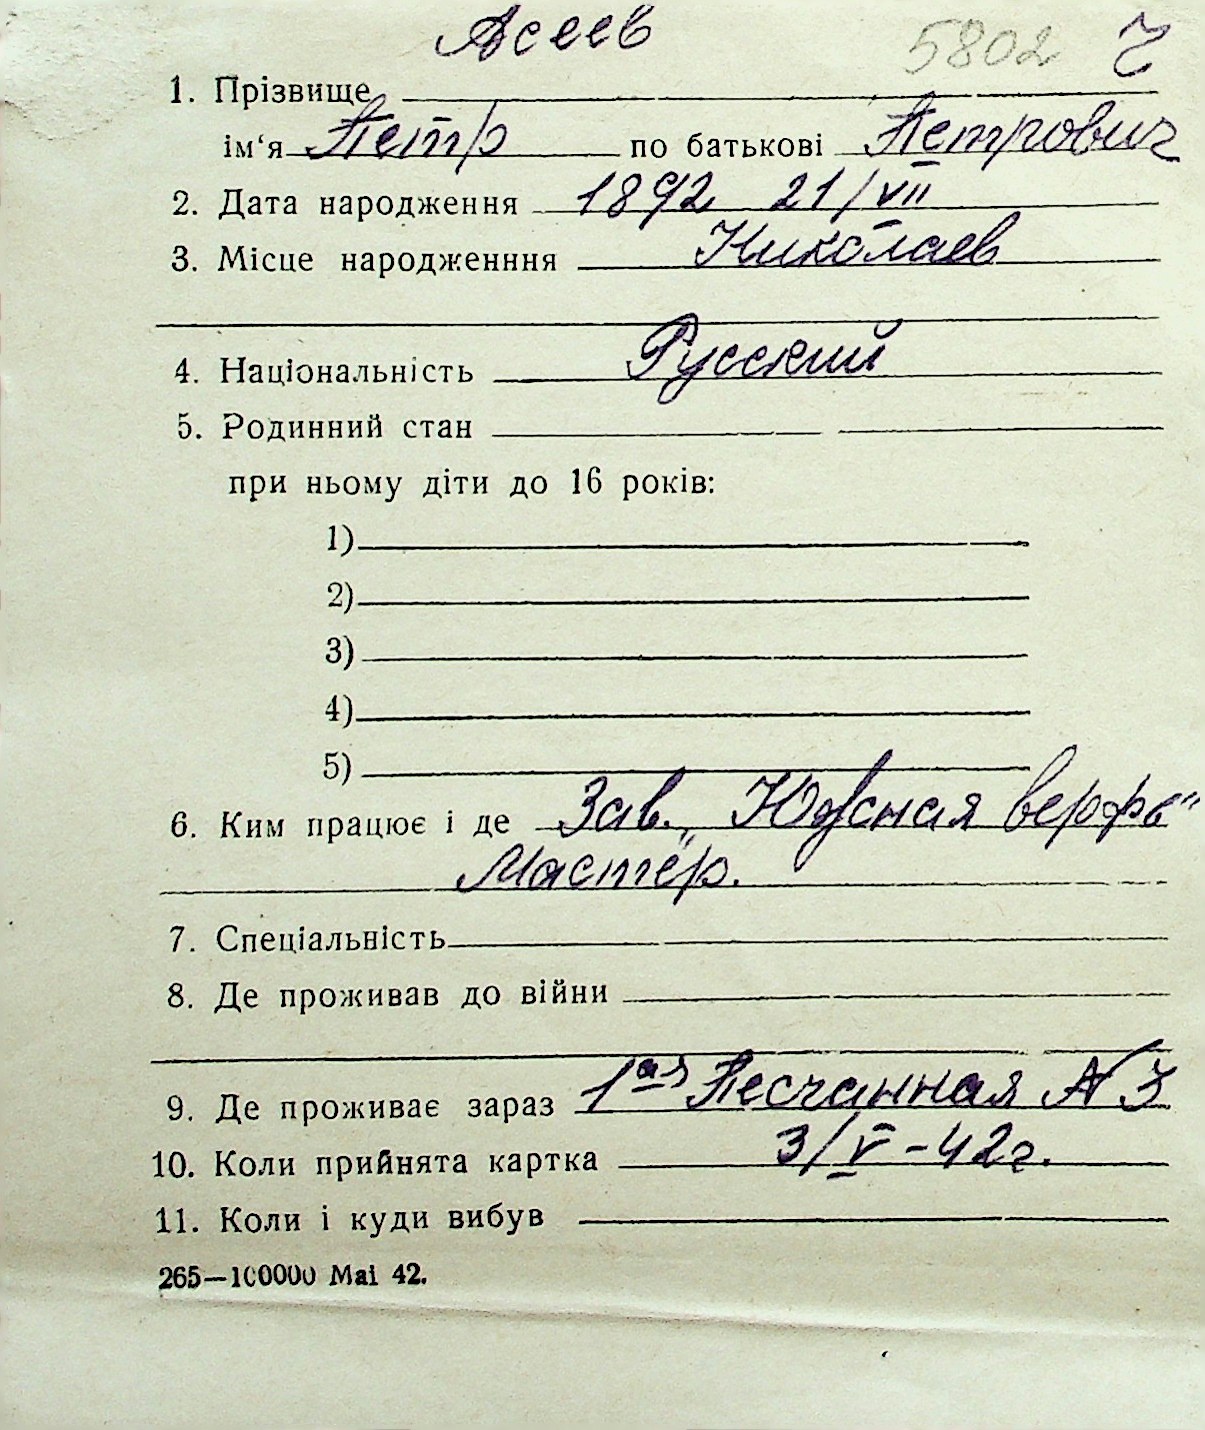 Асеев 5802 Ч
1. Прізвище
ім‘я Петр по батькові Петрович
2. Дата народження 1892 21/VII
3. Місце народженння Николаев
4. Національність Русский
5. Родинний стан
при ньому діти до 16 років:
1)
2)
3)
4)
5)
6. Ким працює і де Зав. „Южная верфь"
Мастер.
7. Спеціальність
8. Де проживав до війни
9. Де проживає зараз 1ая Песчанная № 3
10. Коли прийнята картка 3/V-42г.
11. Коли і куди вибув
265—100000 Mai 42.